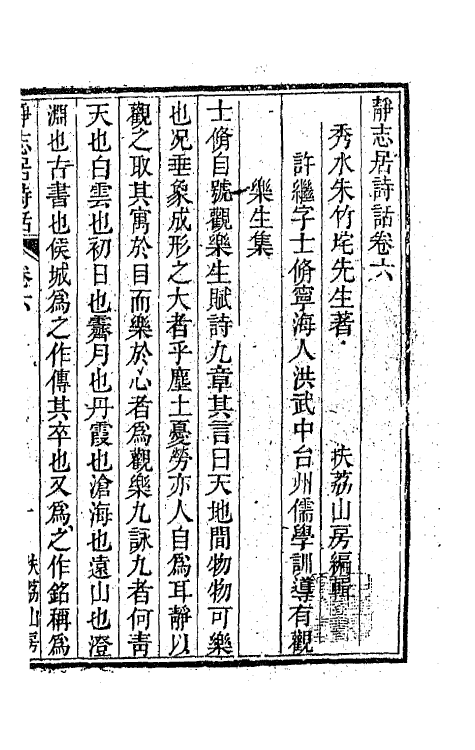 靜志居詩話卷六
秀水朱竹垞先生著 扶荔山房編輯
許繼字士脩寧海人洪武中台州儒學訓導有觀
樂生集
士脩自號觀樂生賦詩九章其言曰天地間物物可樂
也况垂象成形之大者乎塵土憂勞亦人自為耳靜以
觀之取其寓於目而樂於心者為觀樂九詠九者何靑
天也白雲也初日也霽月也丹霞也滄海也遠山也澄
淵也古書也侯城為之作傳其卒也又為之作銘稱為
靜志居詩話 卷六 一 扶荔山房